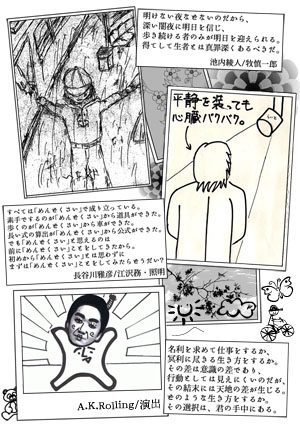 明けない夜なぞないのだから、
深い闇夜に明日を信じ、
歩き続ける者のみが明日を迎えられる。
得てして生者とは真罪深くあるべきだ。
池内綾人/牧慎一郎
平静を装っても
心臓バクバク。
すべては「めんせくさい」で成り立っている。
素手でするのが「めんせくさい」から道具ができた。
歩くのが「めんせくさい」から車ができた。
長い式の算出が「めんせくさい」から公式ができた。
でも「めんせくさい」と思えるのは
前に「めんせくさい」ことをしてきたから。
初めから「めんせくさい」とは思わずに
まずは「めんせくさい」ことをしてみたらそうだい?
長谷川雅彦/江沢務・照明
A.K.Rolling/演出
名利を求めて仕事をするか、
冥利に尽きる生き方をするか。
その差は意識の差であり、
行動としては見えにくいのだが、
その結末には天地の差が生じる。
せのような生き方をするか。
その選択は、君の手中にある。